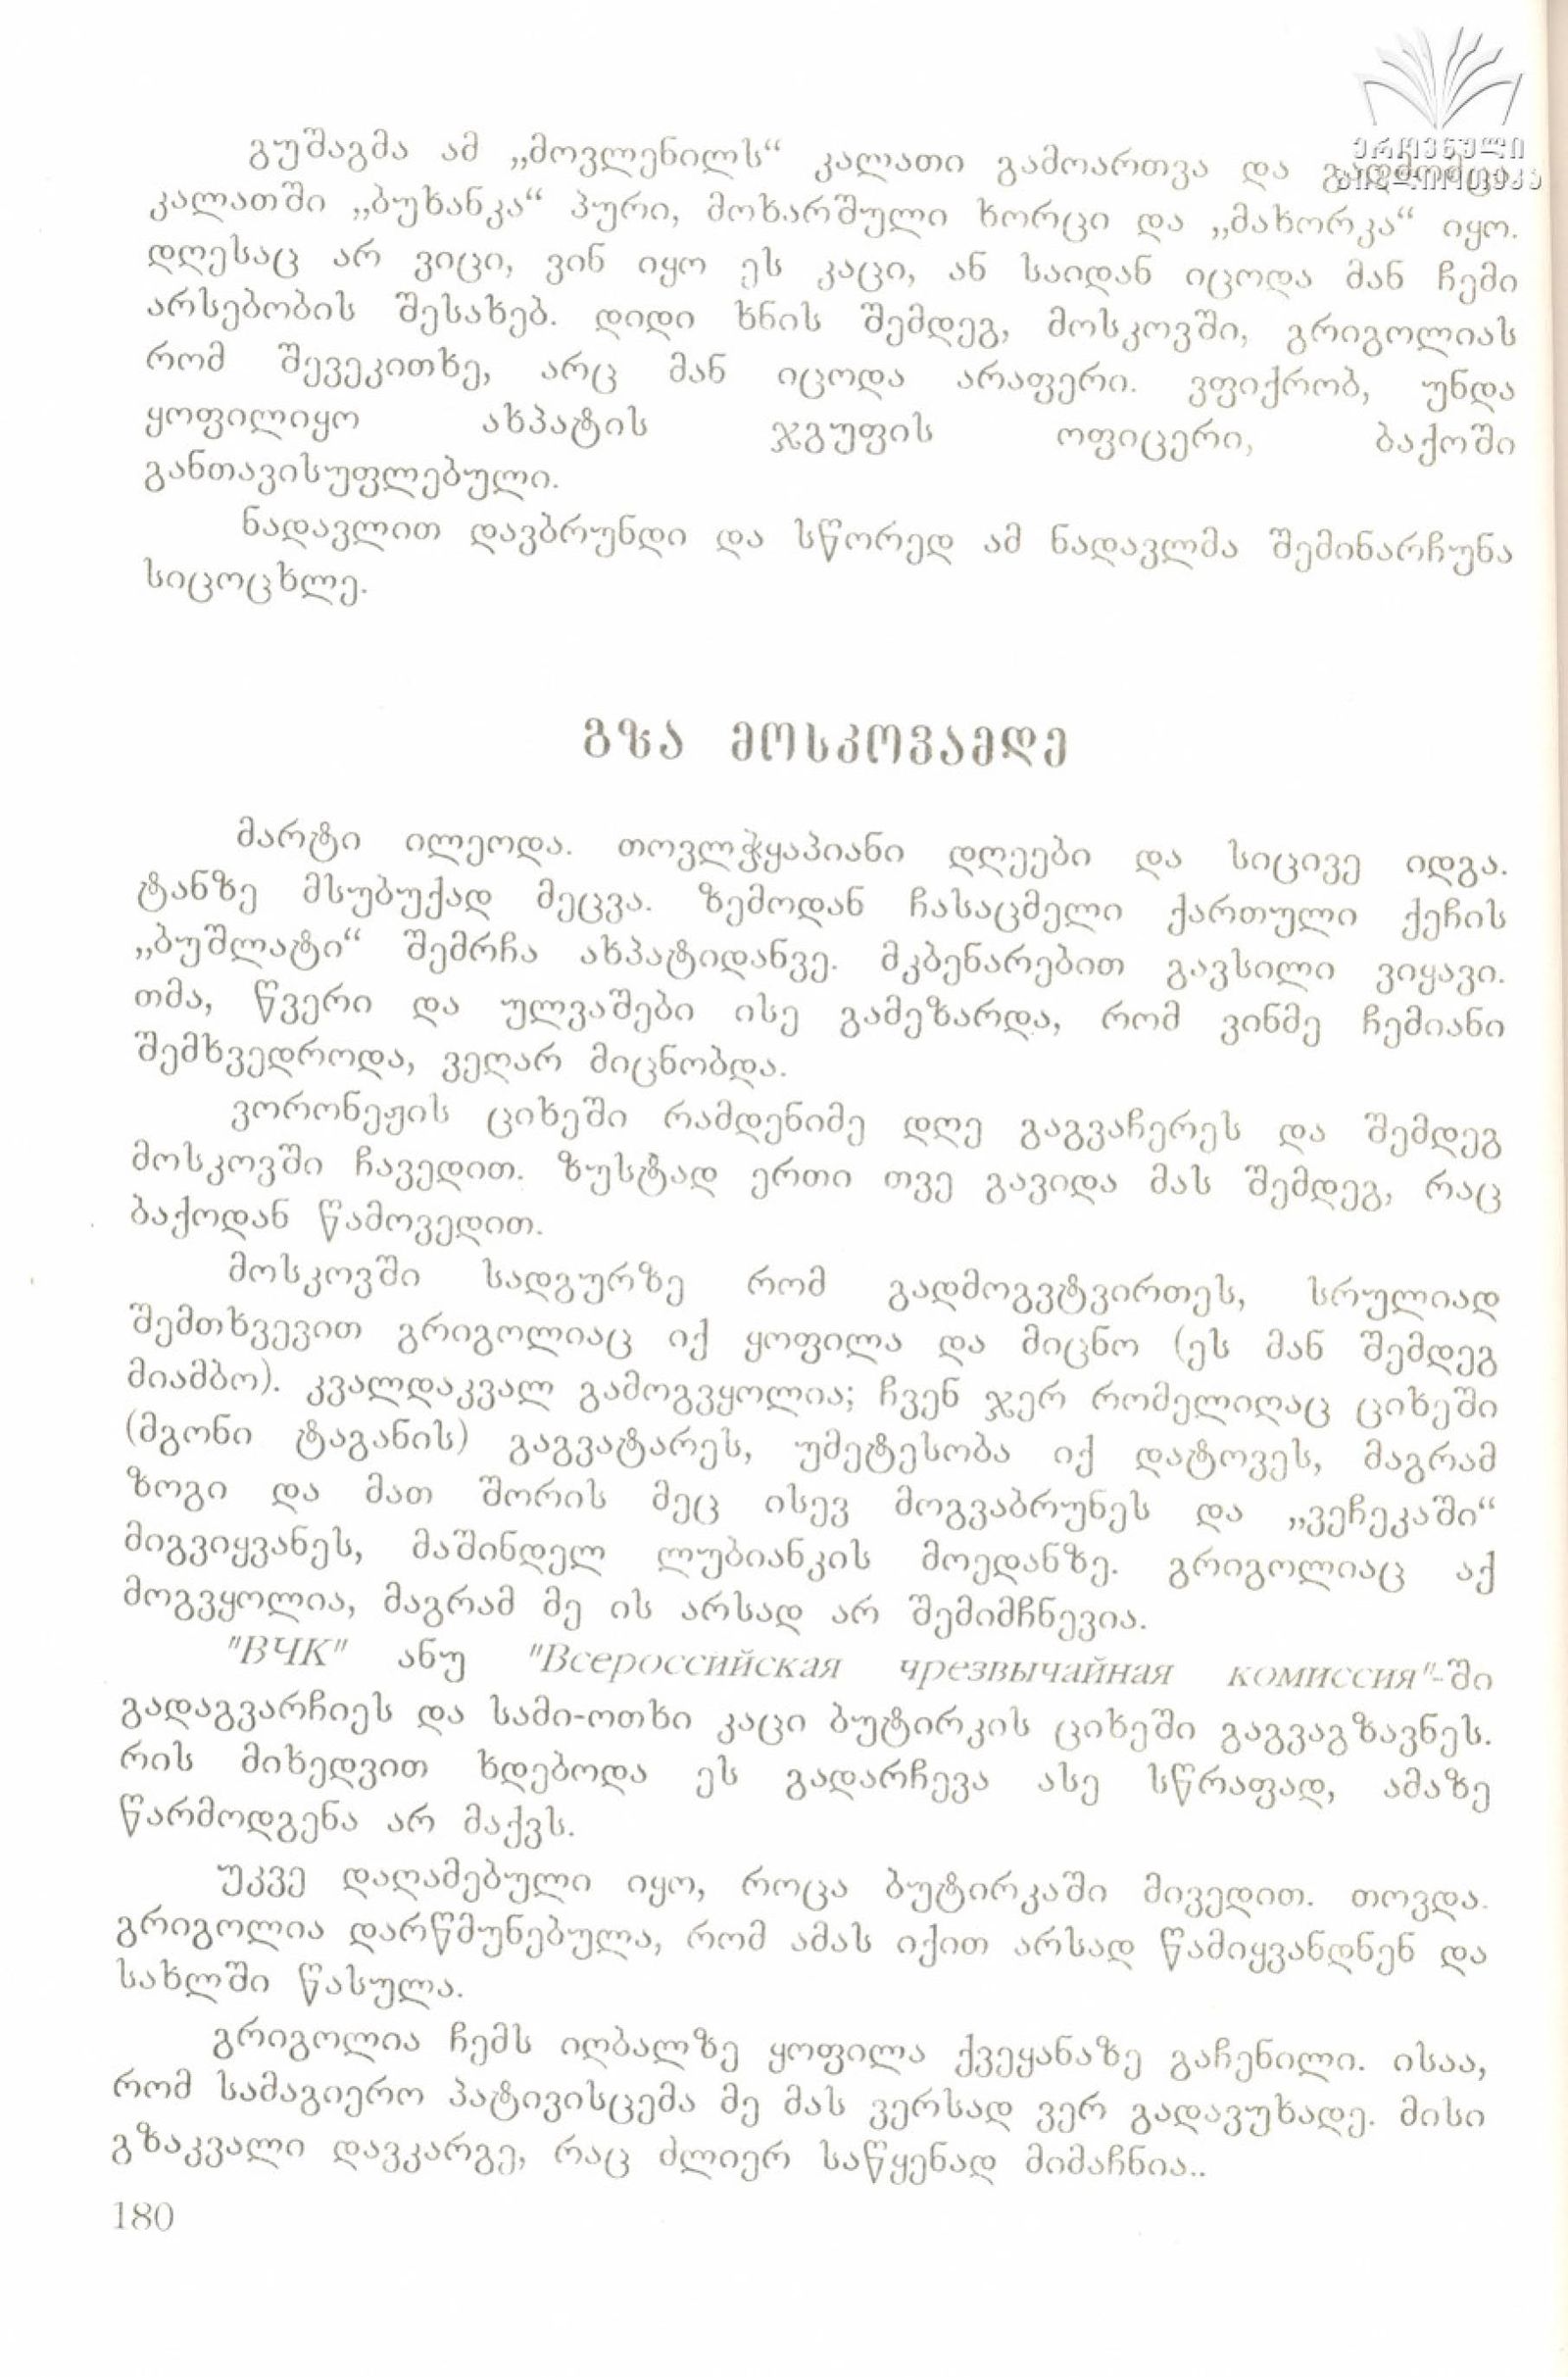 ეროვნული
ბიბლიოთეკა
გუშაგმა ამ „მოვლენილს“ კალათი გამოართვა და
კალათში „ბუხანკა“ პური, მოხარშული ხორცი და „მახორკა“ იყო.
დღესაც არ ვიცი, ვინ იყო ეს კაცი, ან საიდან იცოდა მან ჩემი
არსებობის შესახებ. დიდი ხნის შემდეგ, მოსკოვში, გრიგოლიას
რომ შევეკითხე, არც მან იცოდა არაფერი. ვფიქრობ, უნდა
ყოფილიყო ახპატის ჯგუფის ოფიცერი, ბაქოში
განთავისუფლებული.
ნადავლით დავბრუნდი და სწორედ ამ ნადავლმა შემინარჩუნა
სიცოცხლე.
გზა მოსკოვამდე
მარტი ილეოდა. თოვლჭყაპიანი დღეები და სიცივე იდგა.
ტანზე მსუბუქად მეცვა. ზემოდან ჩასაცმელი ქართული ქეჩის
„ბუშლატი“ შემრჩა ახპატიდანვე. მკბენარებით გავსილი ვიყავი.
თმა, წვერი და ულვაშები ისე გამეზარდა, რომ ვინმე ჩემიანი
შემხვედროდა, ვეღარ მიცნობდა.
ვორონეჟის ციხეში რამდენიმე დღე გაგვაჩერეს და შემდეგ
მოსკოვში ჩავედით. ზუსტად ერთი თვე გავიდა მას შემდეგ, რაც
ბაქოდან წამოვედით.
მოსკოვში სადგურზე რომ გადმოგვტვირთეს, სრულიად
შემთხვევით გრიგოლიაც იქ ყოფილა და მიცნო (ეს მან შემდეგ
მიამბო). კვალდაკვალ გამოგვყოლია; ჩვენ ჯერ რომელიღაც ციხეში
(მგონი ტაგანის) გაგვატარეს, უმეტესობა იქ დატოვეს, მაგრამ
ზოგი და მათ შორის მეც ისევ მოგვაბრუნეს და „ვეჩეკაში“
მიგვიყვანეს, მაშინდელ ლუბიანკის მოედანზე. გრიგოლიაც აქ
მოგვყოლია, მაგრამ მე ის არსად არ შემიმჩნევია.
"ВЧК" ანუ "Всероссийская чрезвычайная комиссия"-ში
გადაგვარჩიეს და სამი-ოთხი კაცი ბუტირკის ციხეში გაგვაგზავნეს.
რის მიხედვით ხდებოდა ეს გადარჩევა ასე სწრაფად, ამაზე
წარმოდგენა არ მაქვს.
უკვე დაღამებული იყო, როცა ბუტირკაში მივედით. თოვდა.
გრიგოლია დარწმუნებულა, რომ ამას იქით არსად წამიყვანდნენ და
სახლში წასულა.
გრიგოლია ჩემს იღბალზე ყოფილა ქვეყანაზე გაჩენილი. ისაა,
რომ სამაგიერო პატივისცემა მე მას ვერსად ვერ გადავუხადე. მისი
გზაკვალი დავკარგე, რაც ძლიერ საწყენად მიმაჩნია..
180